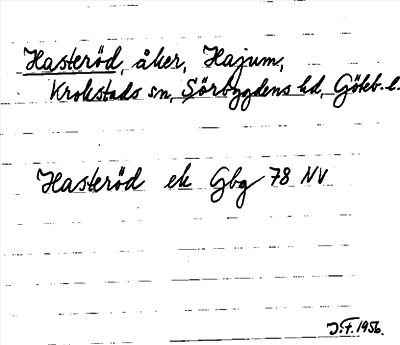 Hasteröd, åker, Hajum,
Krokstads sn, Sörbygdens hd, Göteb. l.
Hasteröd ek Gbg 78 NV
J.F. 1956.